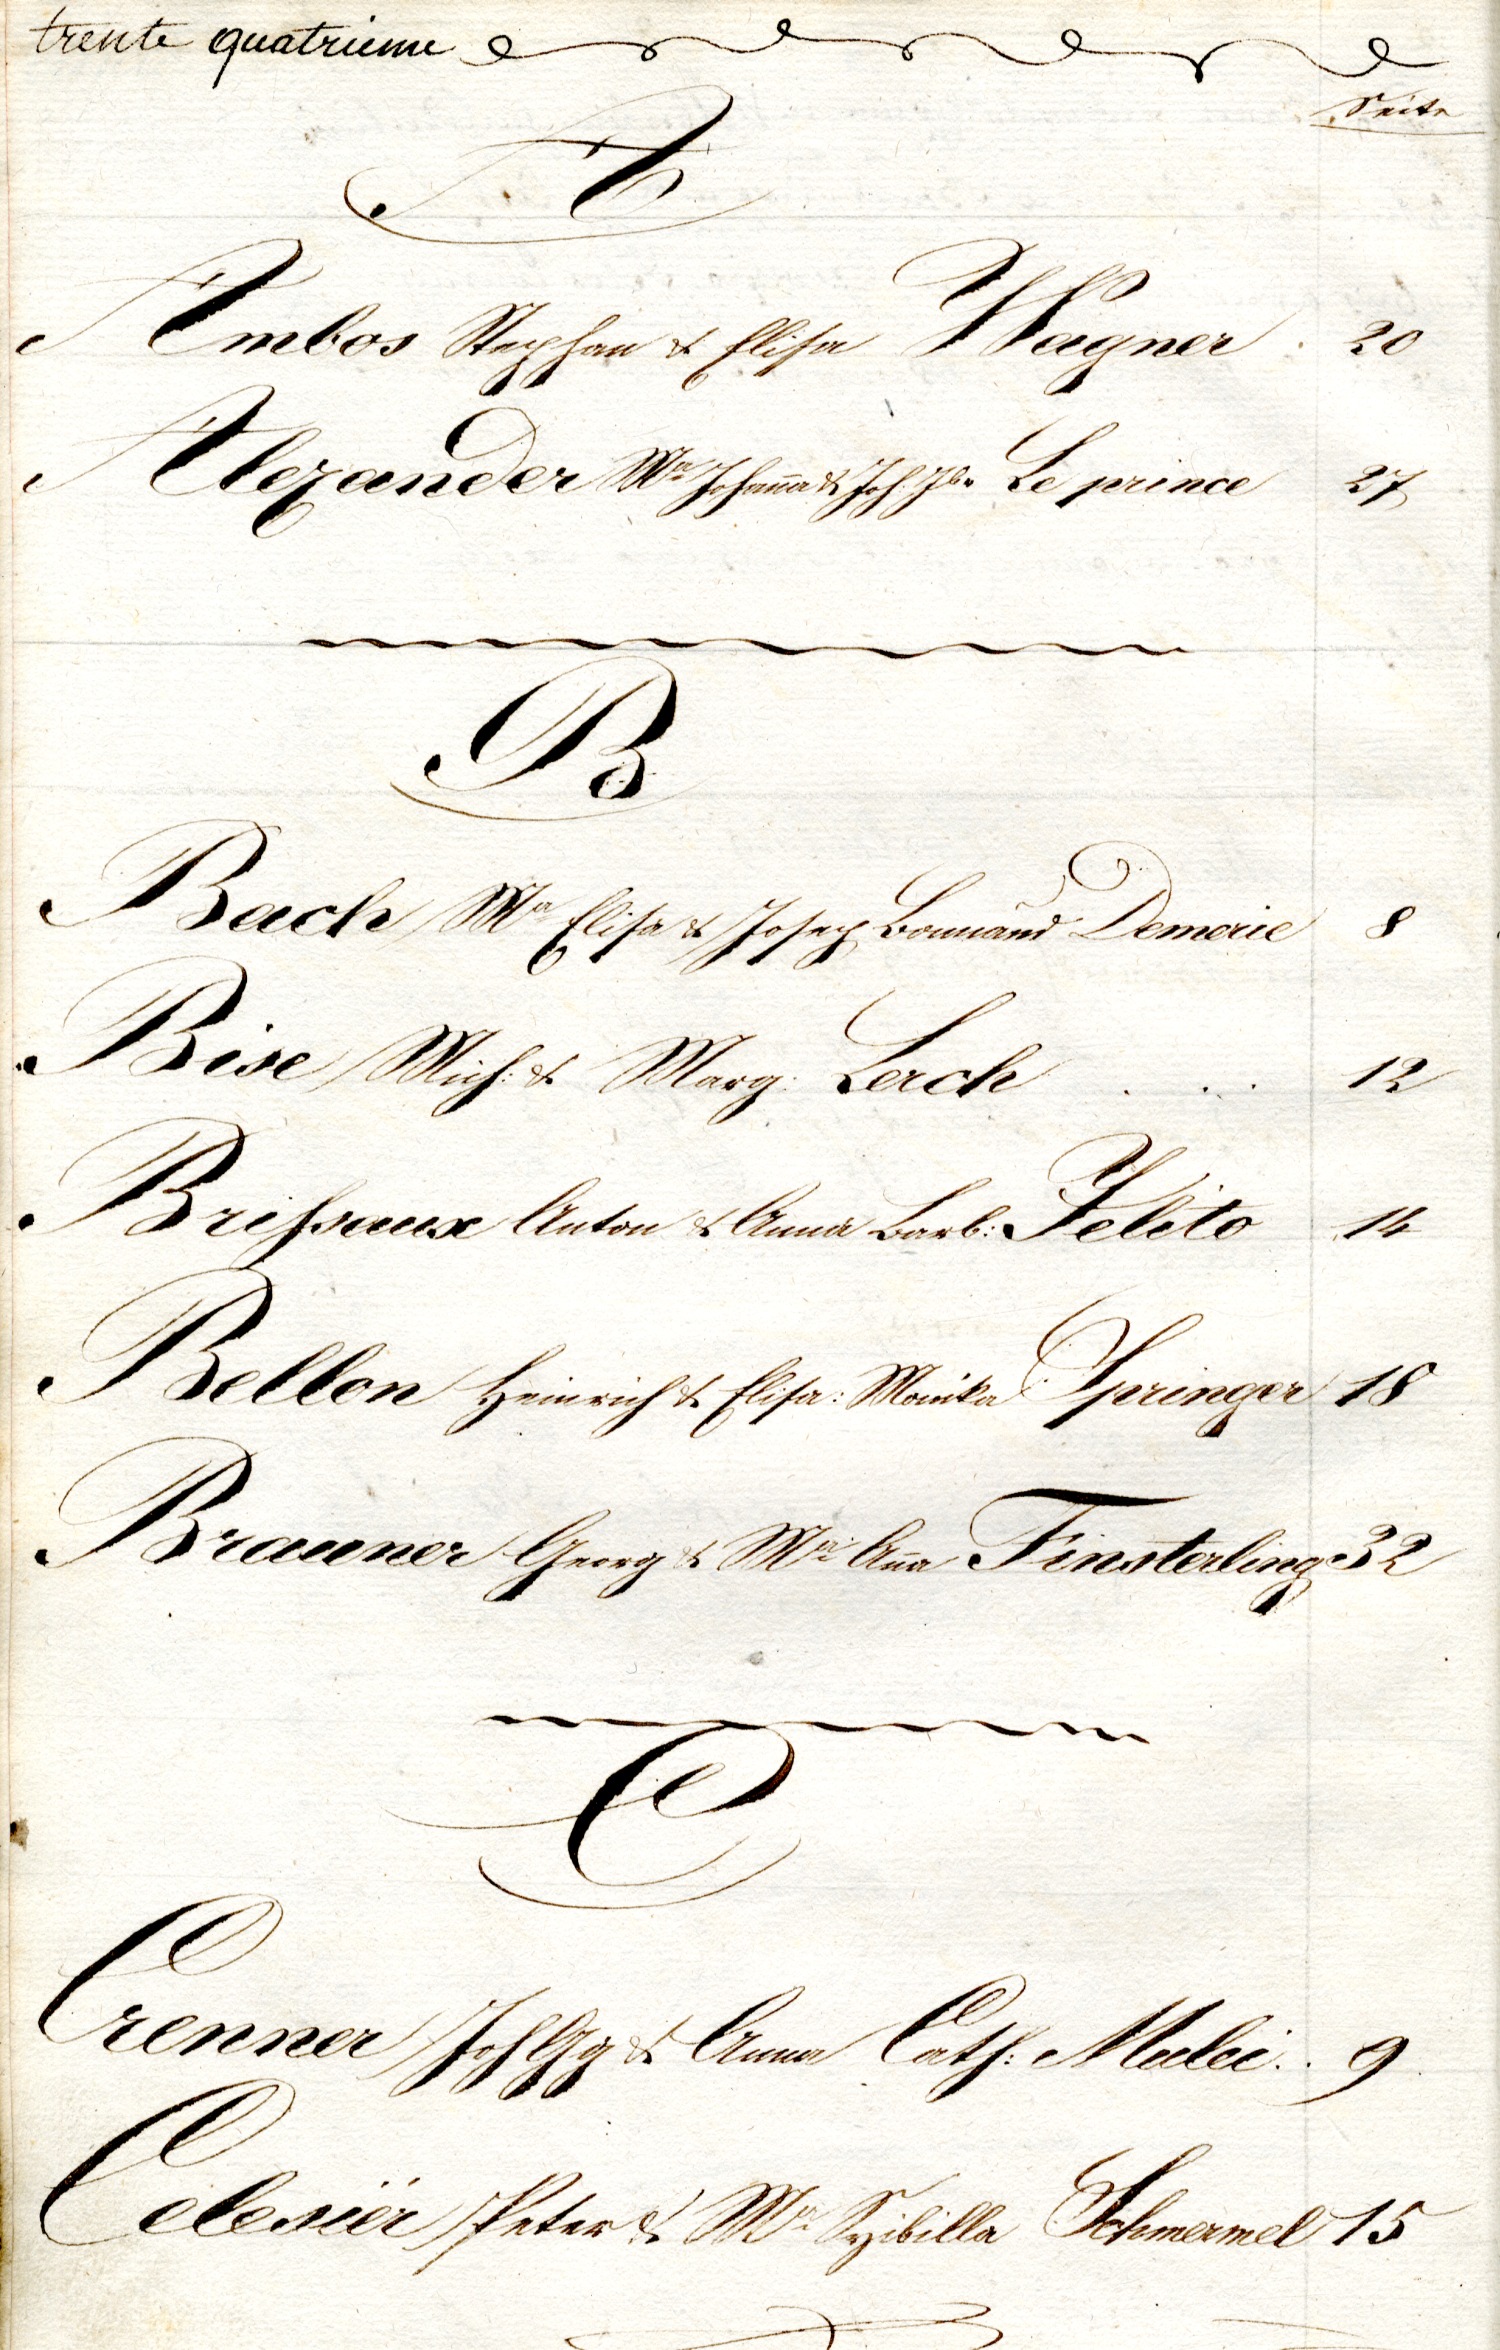 trente quatrieme
Seite
A
Ambos Stephan & Elisa Wagner . 20
Alexander Ma Johanna & Joh. Jb. Le prince 27
B
Bach Ma Elisa & Joseph Demerie 8
Bise Mich: & Marg: Lerch . . . 12
Brissaux Anton & Anna Barb: Felito 14
Bellon Heinrich & Elisa: Monika Springer 18
Brauner Georg & Ma Ana Finsterling 32
C
Crenner Joh Gg & Anna Cath: . . 9
Peter & Ma Sybilla Schmermel 15